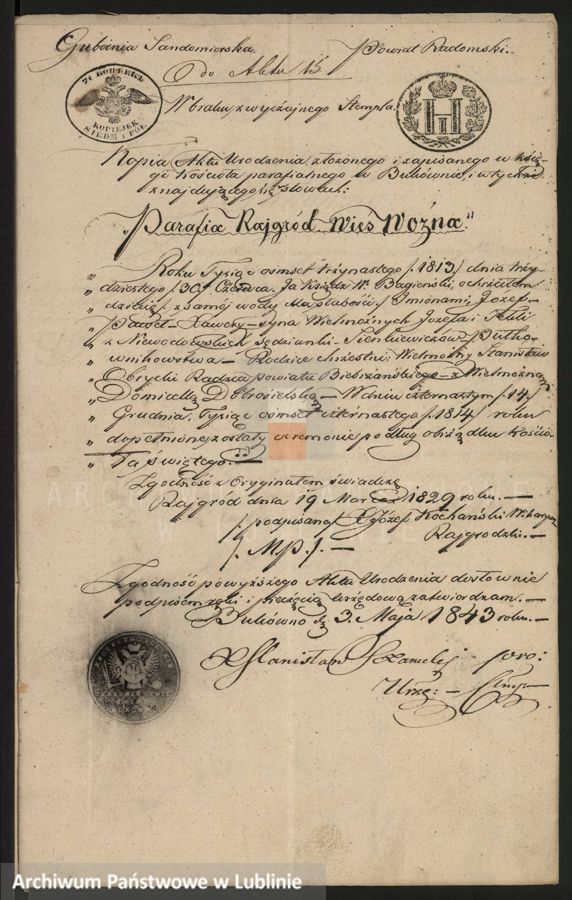 Gubernia Sandomierska. Powiat Radomski.
Do Aktu 15
7½ KOPIEEK
KOPIEJEK
SIEDM I PÓŁ
W braku zwyczajnego Stempla.
Kopia Aktu Urodzenia złożonego i zapisanego w księ-
dze Kościoła parafialnego w Bukównie, w tych że
znajdującego się słowach:
"Parafia Rajgród Wieś Woźna."
„ Roku Tysiąc ośmset trzynastego /:1813:/ dnia trzy-
„ dziestego /:30:/ Czerwca. Ja Ksiądz W. Bagieński, ochrzciłem
„ dziecię z samej wody dla słabości, Imionami Jozef-
„ Paweł-Xawery-syna Wielmożnych Jozefa i Julii
„ z Niewodowskich sędzianki-Sienkiewiczów Pułko-
„ wnikowstwa— Rodzice chrzestni: Wielmożny Stanisław
„ Obrycki Radzca powiatu Biebrzańskiego— z Wielmożną
„ Domicellą — W dniu czternastym /:14:/
„ Grudnia, Tysiąc ośmset czternastego /:1814:/ roku
„ dopełnione zostały ceremonie podług obrządku Kościo-
„ ła świętego.—
Zgodność z Oryginałem świadczę
Rajgród dnia 19 Marca 1829 roku.—
/podpisano/ X Józef Kochański Wikaryusz
/. M.P. /.— Rajgrodzki.—
Zgodność powyższego Aktu Urodzenia dosłownie
podpisem ręki i pieczęcią urzędową zatwierdzam.—
Bukówno d. 3. Maja 1843 roku.—
X Stanisław
Urzę:
Archiwum Państwowe w Lublinie